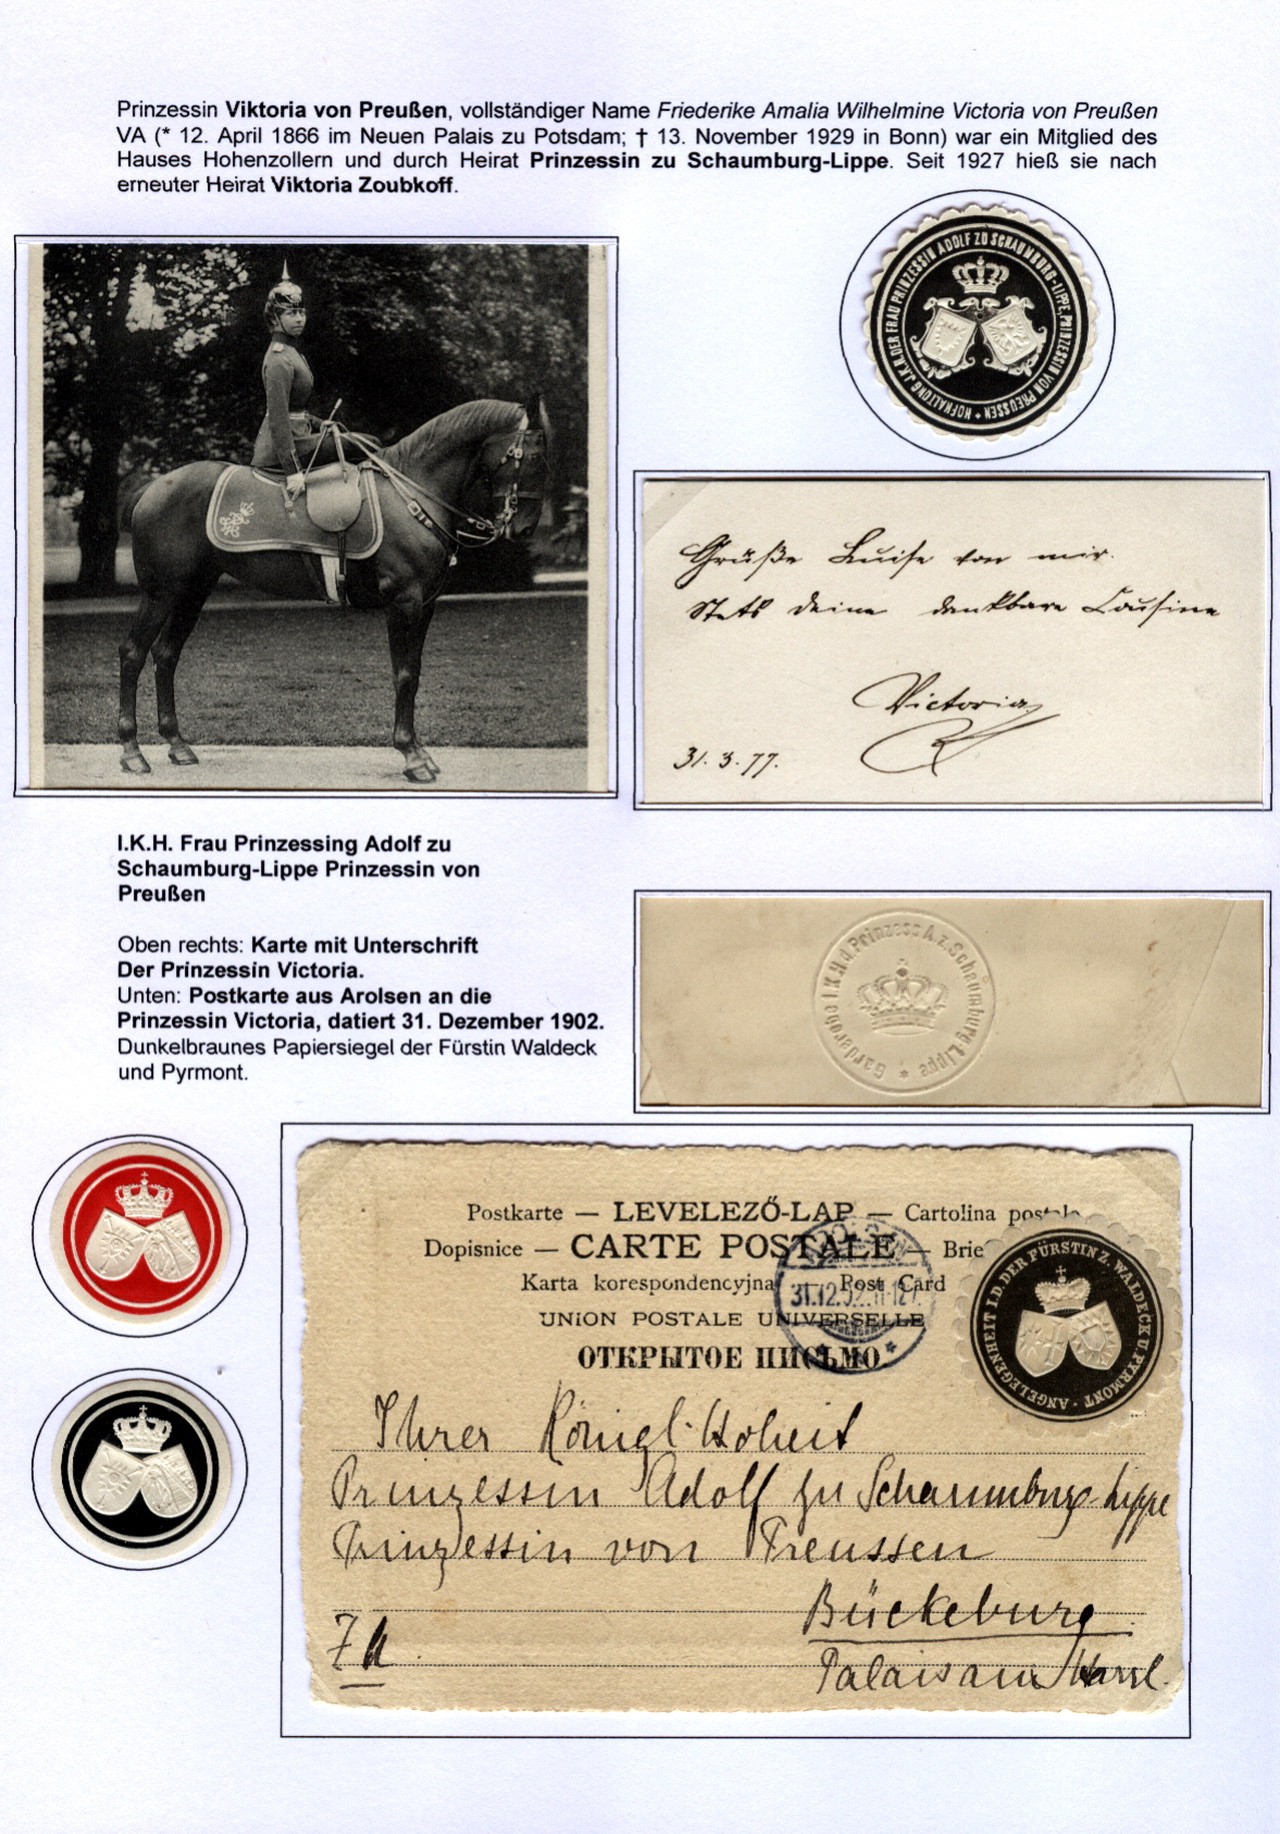 Prinzessin Viktoria von Preußen, vollständiger Name Friederike Amalia Wilhelmine Victoria von Preußen
VA (* 12. April 1866 im Neuen Palais zu Potsdam; † 13. November 1929 in Bonn) war ein Mitglied des
Hauses Hohenzollern und durch Heirat Prinzessin zu Schaumburg-Lippe. Seit 1927 hieß sie nach
erneuter Heirat Viktoria Zoubkoff.
HOFHALTUNG J.K.H. DER FRAU PRINZESSIN ADOLF ZU SCHAUMBURG-LIPPE, PRINZESSIN VON PREUSSEN +
Grüße Luise von mir.
Stets deine dankbare Cousine
Victoria
31. 3. 77.
I.K.H. Frau Prinzessing Adolf zu
Schaumburg-Lippe Prinzessin von
Preußen
Oben rechts: Karte mit Unterschrift
Der Prinzessin Victoria.
Unten: Postkarte aus Arolsen an die
Prinzessin Victoria, datiert 31. Dezember 1902.
Dunkelbraunes Papiersiegel der Fürstin Waldeck
und Pyrmont.
Garderobe I.K.H.d. Prinzess A. z. Schaumburg-Lippe *
Postkarte — LEVELEZŐ-LAP — Cartolina postale
Dopisnice — CARTE POSTALE — Brie
Karta korespondencyjna Post Card
UNION POSTALE UNIVERSELLE
ОТКРЫТОЕ ПИСЬМО
31.12.02. 11-12
ANGELEGENHEIT I.D. DER FÜRSTIN Z. WALDECK U. PYRMONT.
Ihrer Königl. Hoheit
Prinzessin Adolf zu Schaumburg-Lippe
Prinzessin von Preussen
Bückeburg
Palais am Harrl.